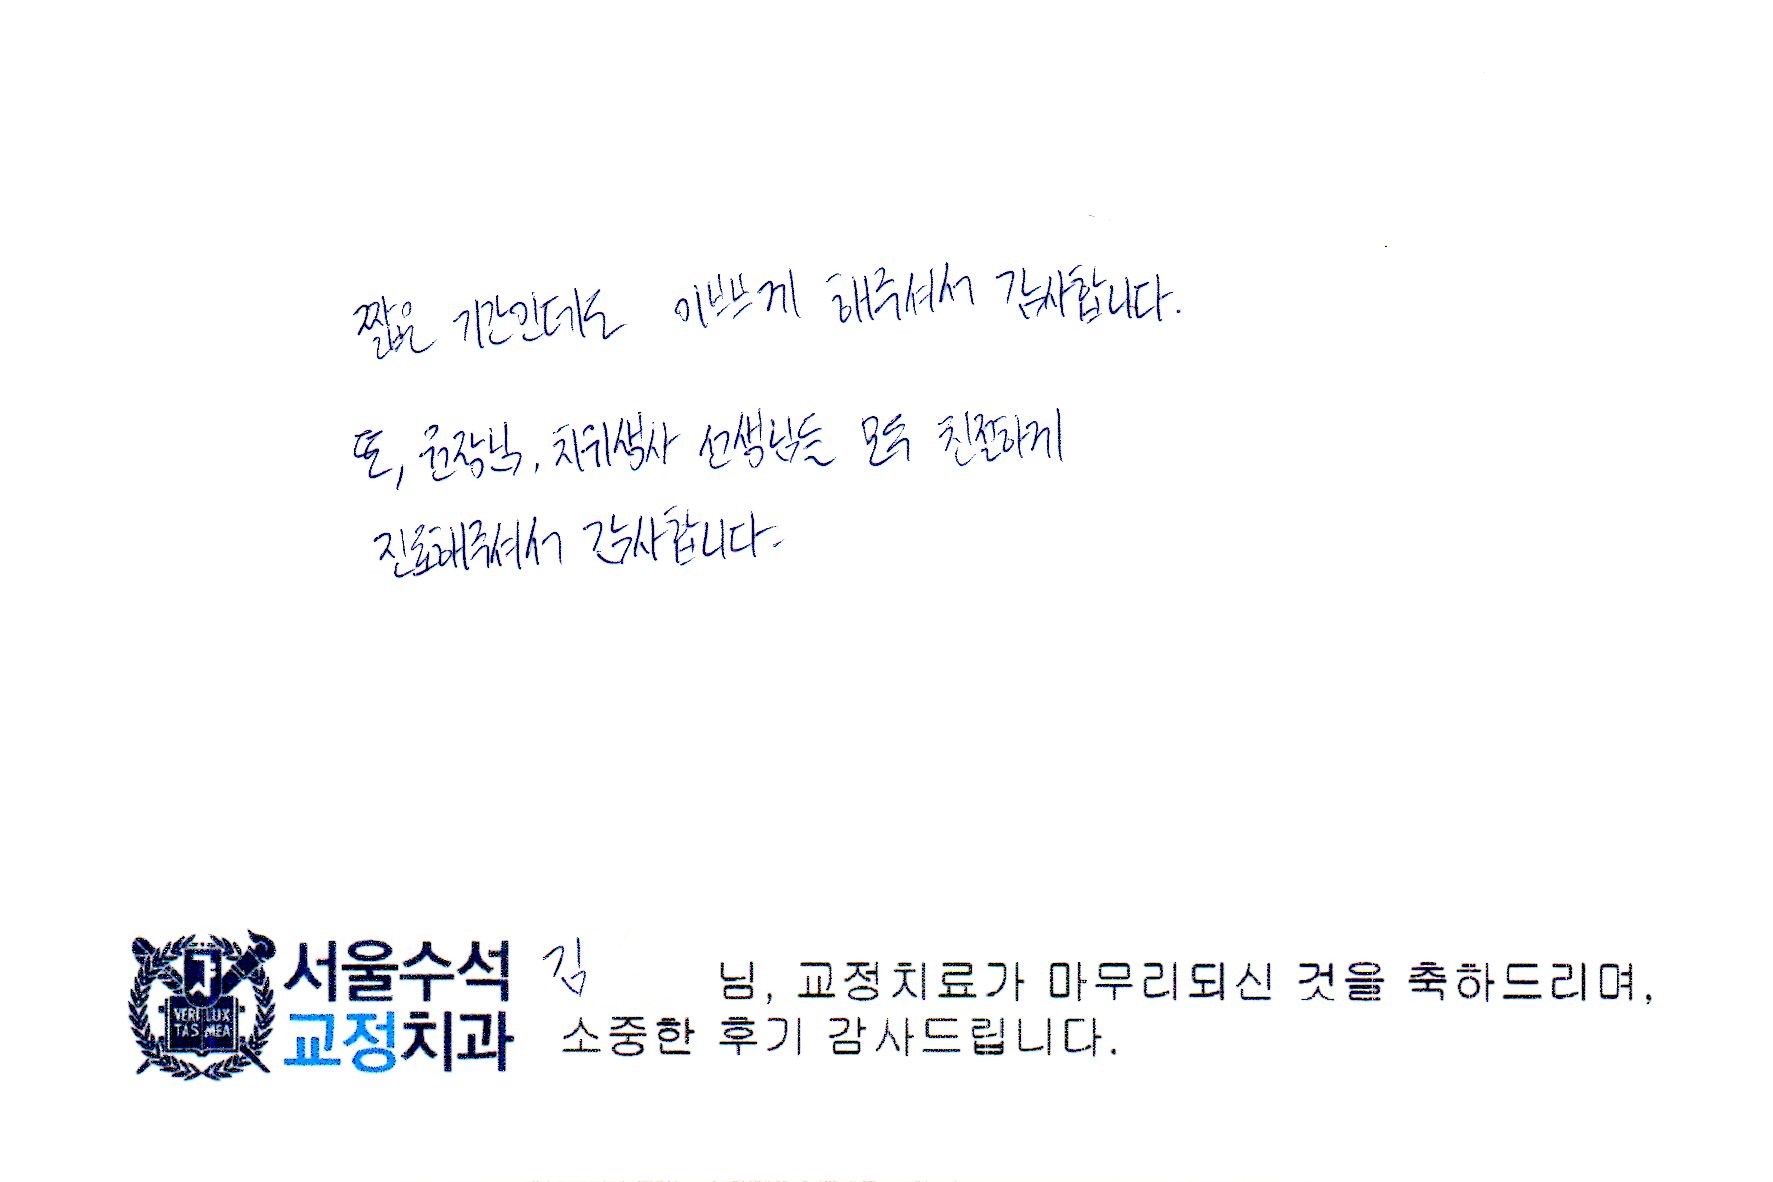 짧은 기간인데도 이쁘게 해주셔서 감사합니다.
또, 원장님, 치위생사 선생님들 모두 친절하게
진료해주셔서 감사합니다.
서울수석
교정치과
VERI LUX
TAS MEA
김 님, 교정치료가 마무리되신 것을 축하드리며,
소중한 후기 감사드립니다.